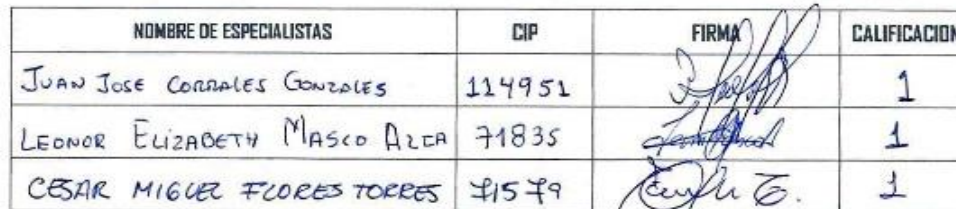 NOMBRE DE ESPECIALISTAS CIP FIRMA CALIFICACION
JUAN JOSE CORRALES GONZALES 114951 1
LEONOR ELIZABETH MASCO 71835 1
CESAR MIGUEL FLORES TORRES 71579 1